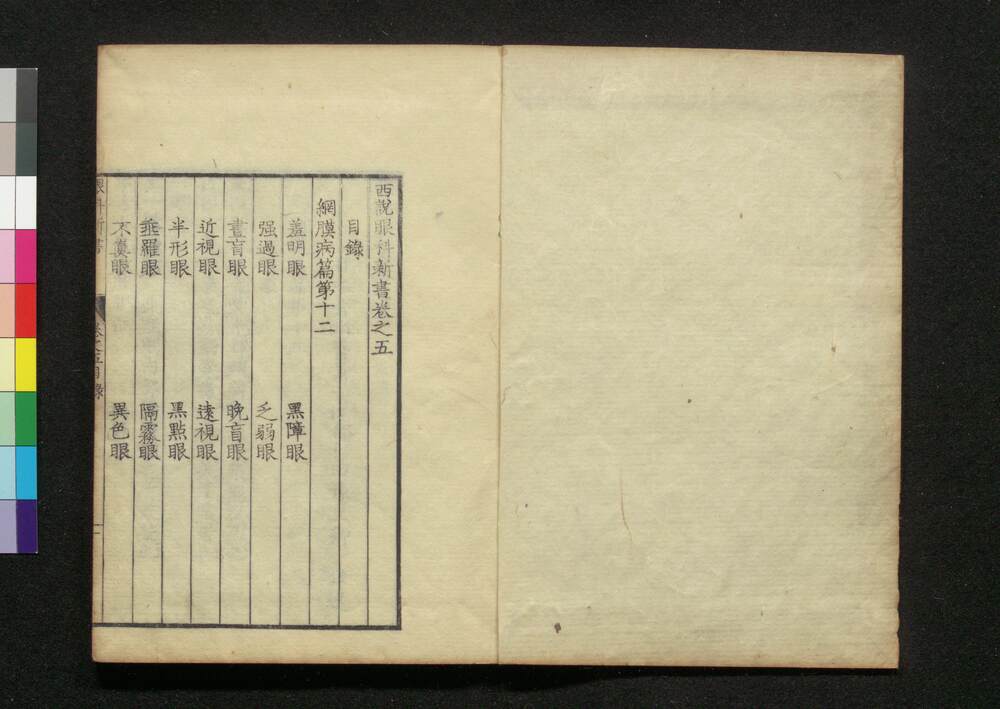 西說眼科新書卷之五
目錄
網膜病篇第十二
羞明眼 黑障眼
强過眼 乏弱眼
晝盲眼 晚盲眼
近視眼 遠視眼
半形眼 黑點眼
垂羅眼 隔霧眼
不糞眼 異色眼
眼科新書 卷之五目錄 一